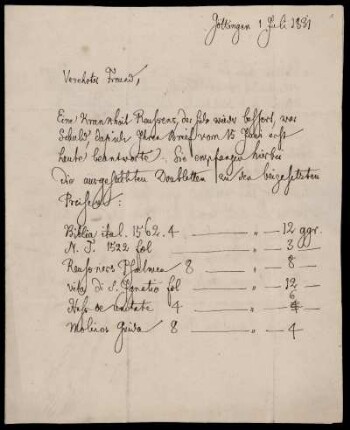 Göttingen 1 Juli 1831
Verehrter Freund,
Eine Krankheit Reussens, der sehr wieder bessert, war
Schuld daß ich Ihren Brief vom 15 Juni erst
heute beantworte. Sie empfangen hierbei
die ausgewählten Doubletten zu den beigesetzten
Preisen:
Biblia ital. 1562. 4 — " — 12 ggr.
N. T. 1522 fol — " — 3
Reusners Psalmen 8 — " — 8
vita di S. Ignatio fol — " — 12
de 4 — " — 6
Molinos Guida 8 — " — 4